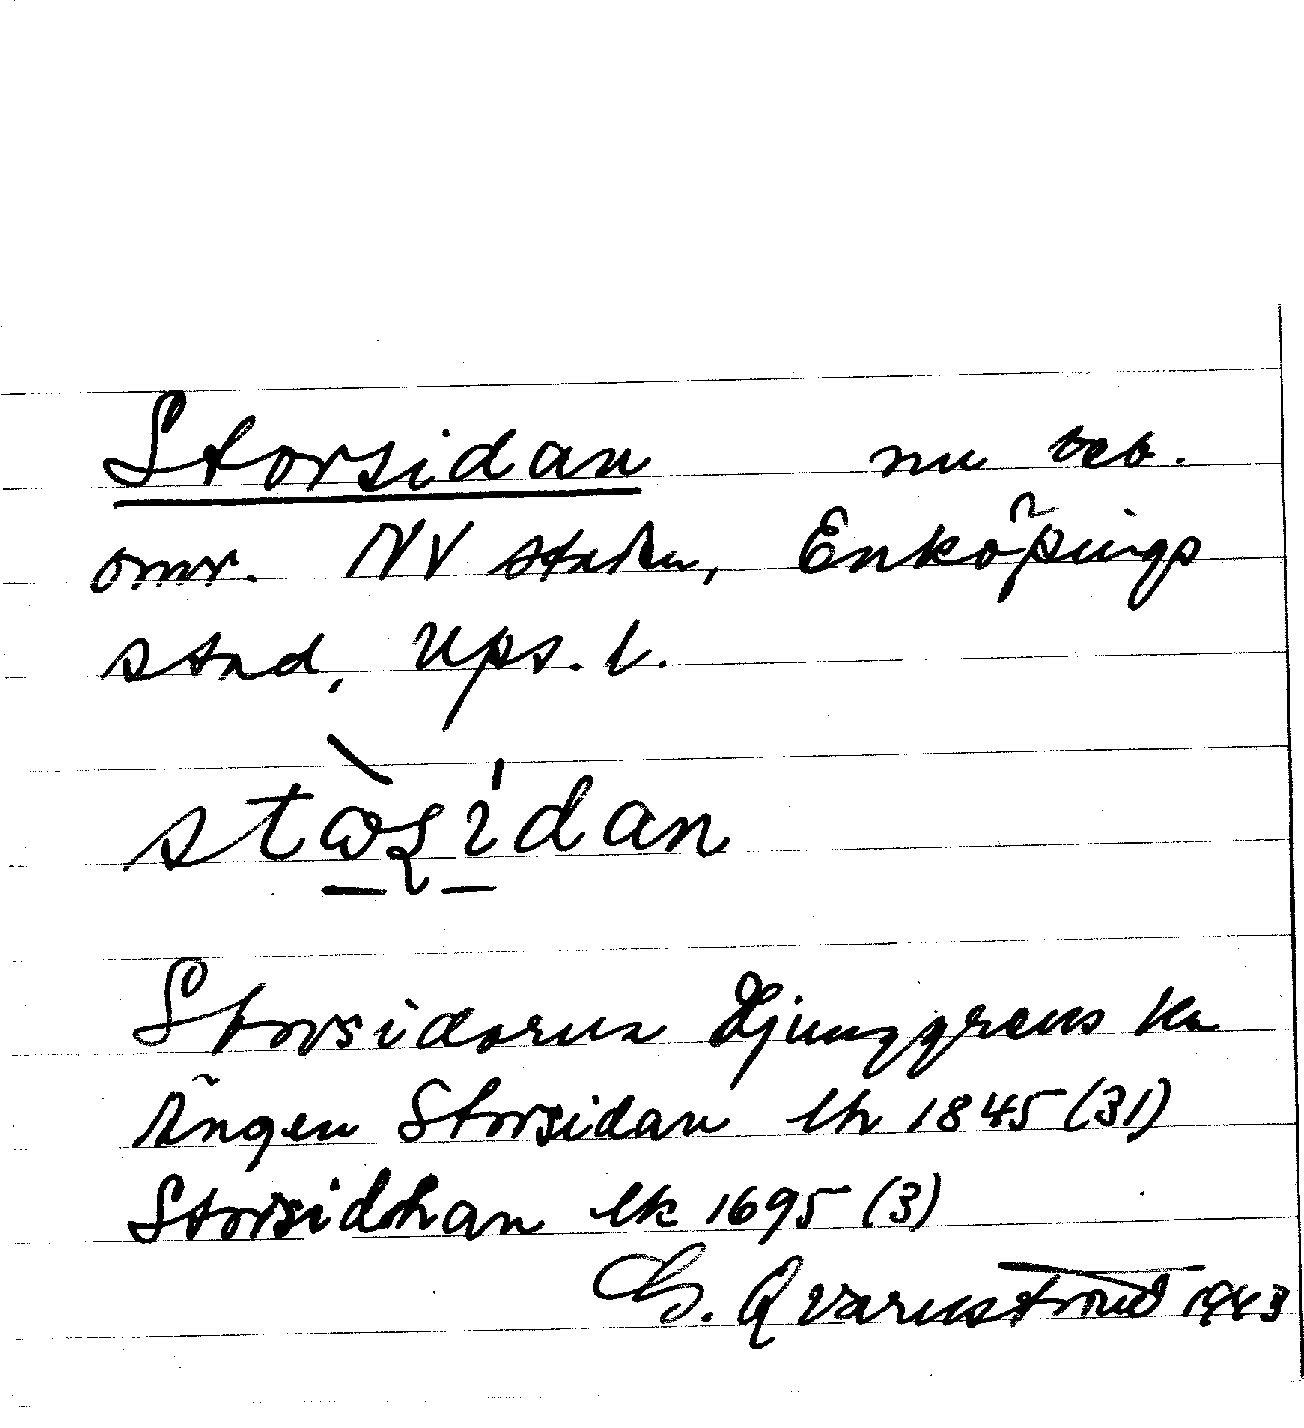 Storsidan nu beb.
omr. NV staden, Enköpings
stad, Ups. l.
stɷ̀ʂídan
Storsidorna Ljunggrens ka
Ängen Storsidan lh 1845 (31)
Storsidhan lk 1695 (3)
G. Qvarnström 1943